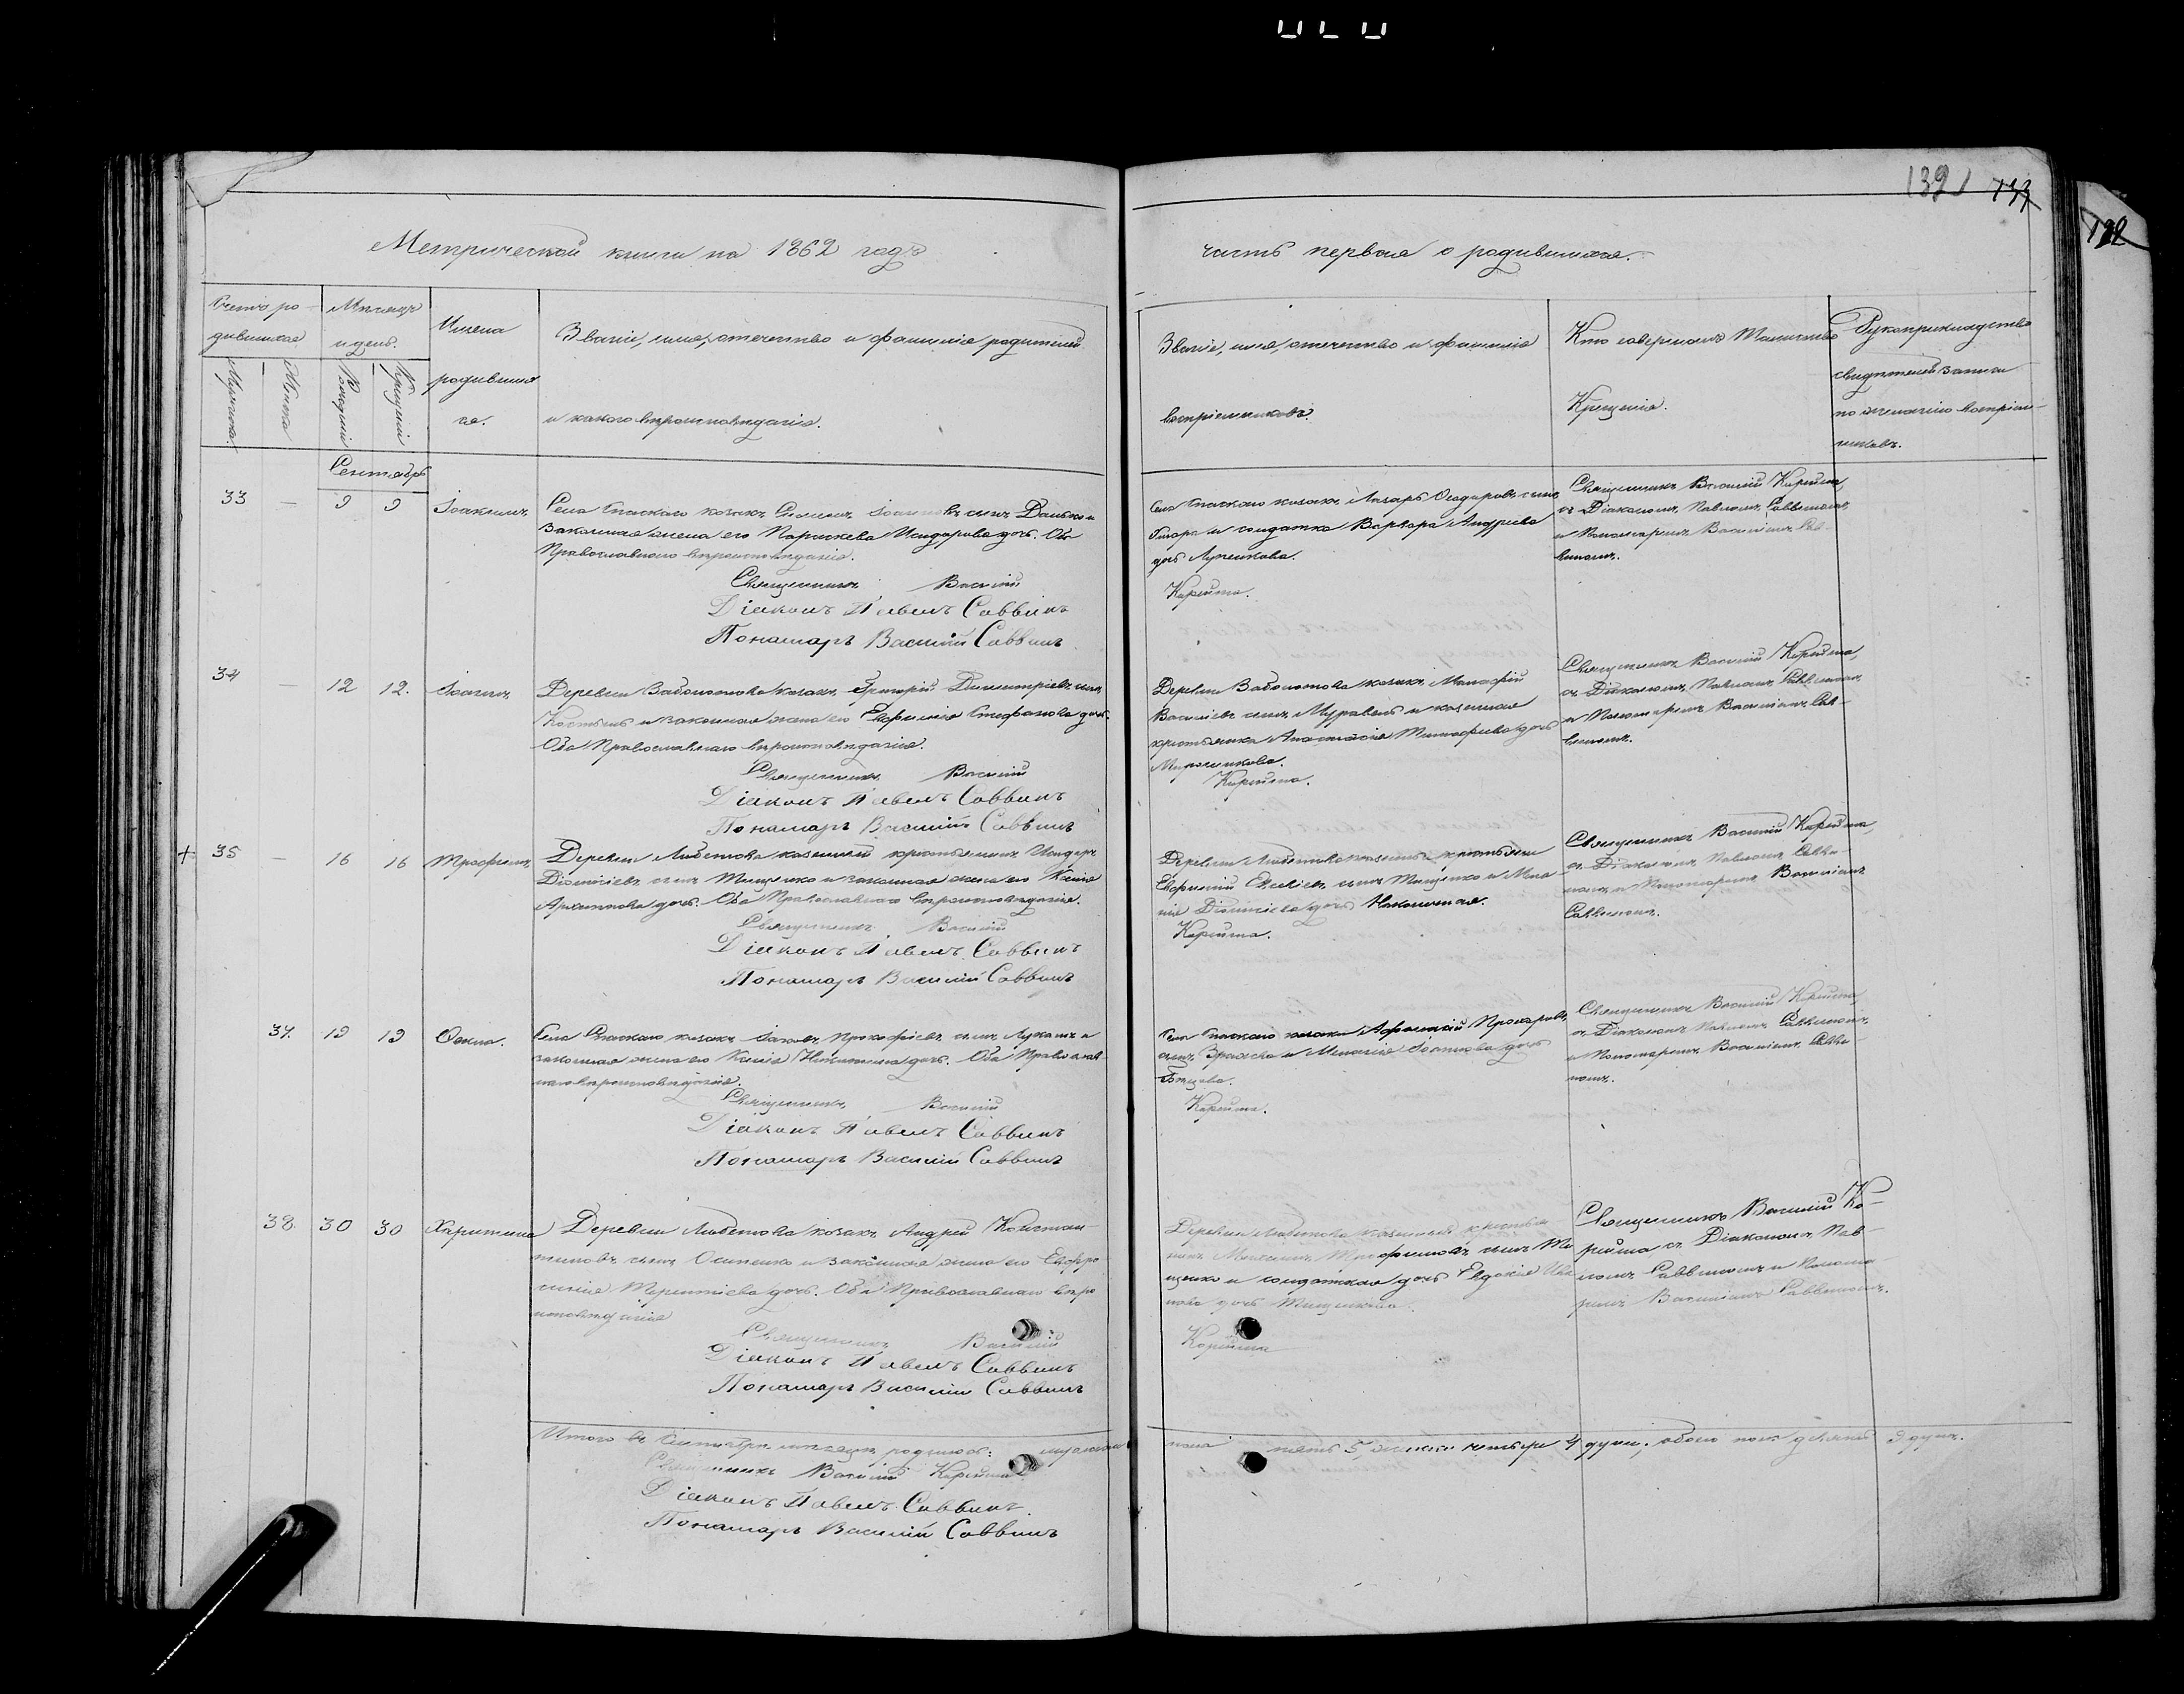 1391 137
132
Метрической книги на 1862 годъ
часть первая о родившихся.
Счетъ ро-
дившихся
Мѣсяцъ
и день.
Имена
родивших
ся.
Званіе, имя, отчество и фамилія родителей
и какого вѣроисповѣданія.
Мужеска.
Женска
Рожденія
Крещенія
Званіе, имя, отчество и фамилія
воспріемниковъ.
Кто совершалъ Таинство
Крещенія.
Рукоприкладство
свидѣтелей записи
по желанію воспріем-
никовъ.
Сентябрь
33 — 9 9 Іоакимъ
Села Спаскаго козакъ Симеонъ Іоанновъ сынъ Данько и
Законная жена его Параскева Исидорова дочь. Оба
Православнаго вѣроисповѣданія.
Священникъ Василій
Діаконъ Павелъ Саввинъ
Пономарь Василій Саввинъ
Села Спаскаго козакъ Лазарь Ѳеодоровъ сынъ
и солдатка Варвара Андреева
дочь Лученкова.
Корейша.
Священникъ Василій Корейша,
съ Діакономъ Павломъ Саввинымъ,
и Пономаремъ Василіемъ Сав-
винымъ.
34 — 12 12. Іоаннъ
Деревни Заболотова козакъ Григорій Димитріевъ сынъ
Костыль и законная жена его Евфимія Стефанова дочь.
Оба Православнаго вѣроисповѣданія.
Священникъ Василій
Діаконъ Павелъ Саввинъ
Пономарь Василій Саввинъ
Деревни Заболотова козакъ
Василіевъ сынъ Муравель и казенная
крестьянка Анастасія Тимофѣева дочь
Мирошникова.
Корейша.
Священникъ Василій Корейша,
съ Діакономъ Павломъ Саввинымъ,
и Пономаремъ Василіемъ Сав-
винымъ.
+ 35 — 16 16 Трофимъ
Деревни Любитова казенный крестьянинъ Исидоръ
Діонисіевъ сынъ Тищенко и законная жена его Ксенія
Архиппова дочь. Оба Православнаго вѣроисповѣданія.
Священникъ Василій
Діаконъ Павелъ Саввинъ
Пономарь Василій Саввинъ
Деревни Любитова казенный крестьянин
Евфимій сынъ Тищенко и Мела
нія Діонисіева дочь
Корейша.
Священникъ Василій Корейша,
съ Діакономъ Павломъ Савви-
нымъ и Пономаремъ Василіемъ
Саввинымъ.
37. 19 19 Ѳекла.
Села Спаскаго козакъ Іаковъ Прокофіевъ сынъ и
законная жена его Ксенія Никитина дочь. Оба Православ-
наго вѣроисповѣданія.
Священникъ Василій
Діаконъ Павелъ Саввинъ
Пономарь Василій Саввинъ
Села Спаскаго козакъ Афанасій
сынъ и Меланія Іоаннова дочь
Корейша.
Священникъ Василій Корейша,
съ Діакономъ Павломъ Саввинымъ,
и Пономаремъ Василіемъ Савви-
нымъ.
38. 30 30 Харитина
Деревни Любитова козакъ Андрей Констан-
тиновъ сынъ Осипенко и законная жена его Евфро
синія Терентіева дочь. Оба Православнаго вѣро
исповѣданія
Священникъ Василій
Діаконъ Павелъ Саввинъ
Пономарь Василій Саввинъ
Деревни Любитова казенный крестьян
инъ Трофимовъ сынъ Ти
щенко и солдатская дочь Евдокія Ива
нова дочь Тищенкова.
Корейша
Священникъ Василій Ко-
рейша съ Діакономъ Пав-
ломъ Саввинымъ и Понома-
ремъ Василіемъ Саввинымъ.
Итого въ Сентябрѣ мѣсяцѣ родилось: мужеска
пола пять 5, женска четыре 4 души, обоего пола девять 9 душъ.
Священникъ Василій Корейша
Діаконъ Павелъ Саввинъ
Пономарь Василій Саввинъ